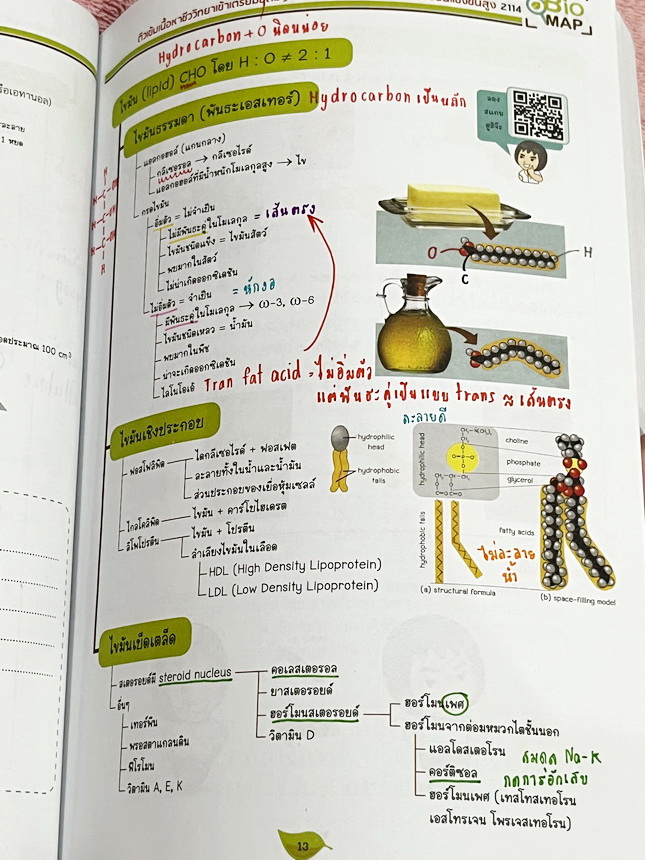 ติวเข้มเนื้อหาชีววิทยาเข้าเตรียม
2114
Bio
MAP
Hydrocarbon + O นิดหน่อย
ไขมัน (lipid) CHO โดย H : O ≠ 2 : 1
ไขมันธรรมดา (พันธะเอสเทอร์) Hydrocarbon เป็นหลัก
ลอง
สแกน
ดูสิจ๊ะ
แอลกอฮอล์ (แกนกลาง)
กลีเซอรอล → กลีเซอไรด์
แอลกอฮอล์ที่มีน้ำหนักโมเลกุลสูง → ไข
กรดไขมัน
อิ่มตัว = ไม่จำเป็น
ไม่มีพันธะคู่ในโมเลกุล = เส้นตรง
ไขมันชนิดแข็ง = ไขมันสัตว์
พบมากในสัตว์
ไม่น่าเกิดออกซิเดชัน
ไม่อิ่มตัว = จำเป็น = หักงอ
มีพันธะคู่ในโมเลกุล → ω-3, ω-6
ไขมันชนิดเหลว = น้ำมัน
พบมากในพืช
น่าจะเกิดออกซิเดชัน
ไลโนโอเอ้ Tran fat acid = ไม่อิ่มตัว
แต่พันธะคู่เป็นแบบ trans ≈ เส้นตรง
O
C
H
ไขมันเชิงประกอบ
ฟอสโฟลิพิด
ไดกลีเซอไรด์ + ฟอสเฟต
ละลายทั้งในน้ำและน้ำมัน
ส่วนประกอบของเยื่อหุ้มเซลล์
ไกลโคลิพิด
ไขมัน + คาร์โบไฮเดรต
ลิโพโปรตีน
ไขมัน + โปรตีน
ลำเลียงไขมันในเลือด
HDL (High Density Lipoprotein)
LDL (Low Density Lipoprotein)
hydrophilic
head
hydrophobic
tails
ละลายดี
hydrophilic head
hydrophobic tails
choline
phosphate
glycerol
fatty acids
ไม่ละลาย
น้ำ
(a) structural formula
(b) space-filling model
ไขมันเบ็ดเตล็ด
สเตอรอยด์มี steroid nucleus
คอเลสเตอรอล
ยาสเตอรอยด์
ฮอร์โมนสเตอรอยด์
วิตามิน D
ฮอร์โมนเพศ
ฮอร์โมนจากต่อมหมวกไตชั้นนอก
แอลโดสเตอโรน สมดุล Na-K
คอร์ติซอล กดการอักเสบ
ฮอร์โมนเพศ (เทสโทสเทอโรน
เอสโทรเจน โพรเจสเทอโรน)
อื่นๆ
เทอร์พีน
พรอสตาแกลนดิน
ฟีโรโมน
วิตามิน A, E, K
13
รือเอทานอล)
ละลาย
1 หยด
ประมาณ 100 cm³